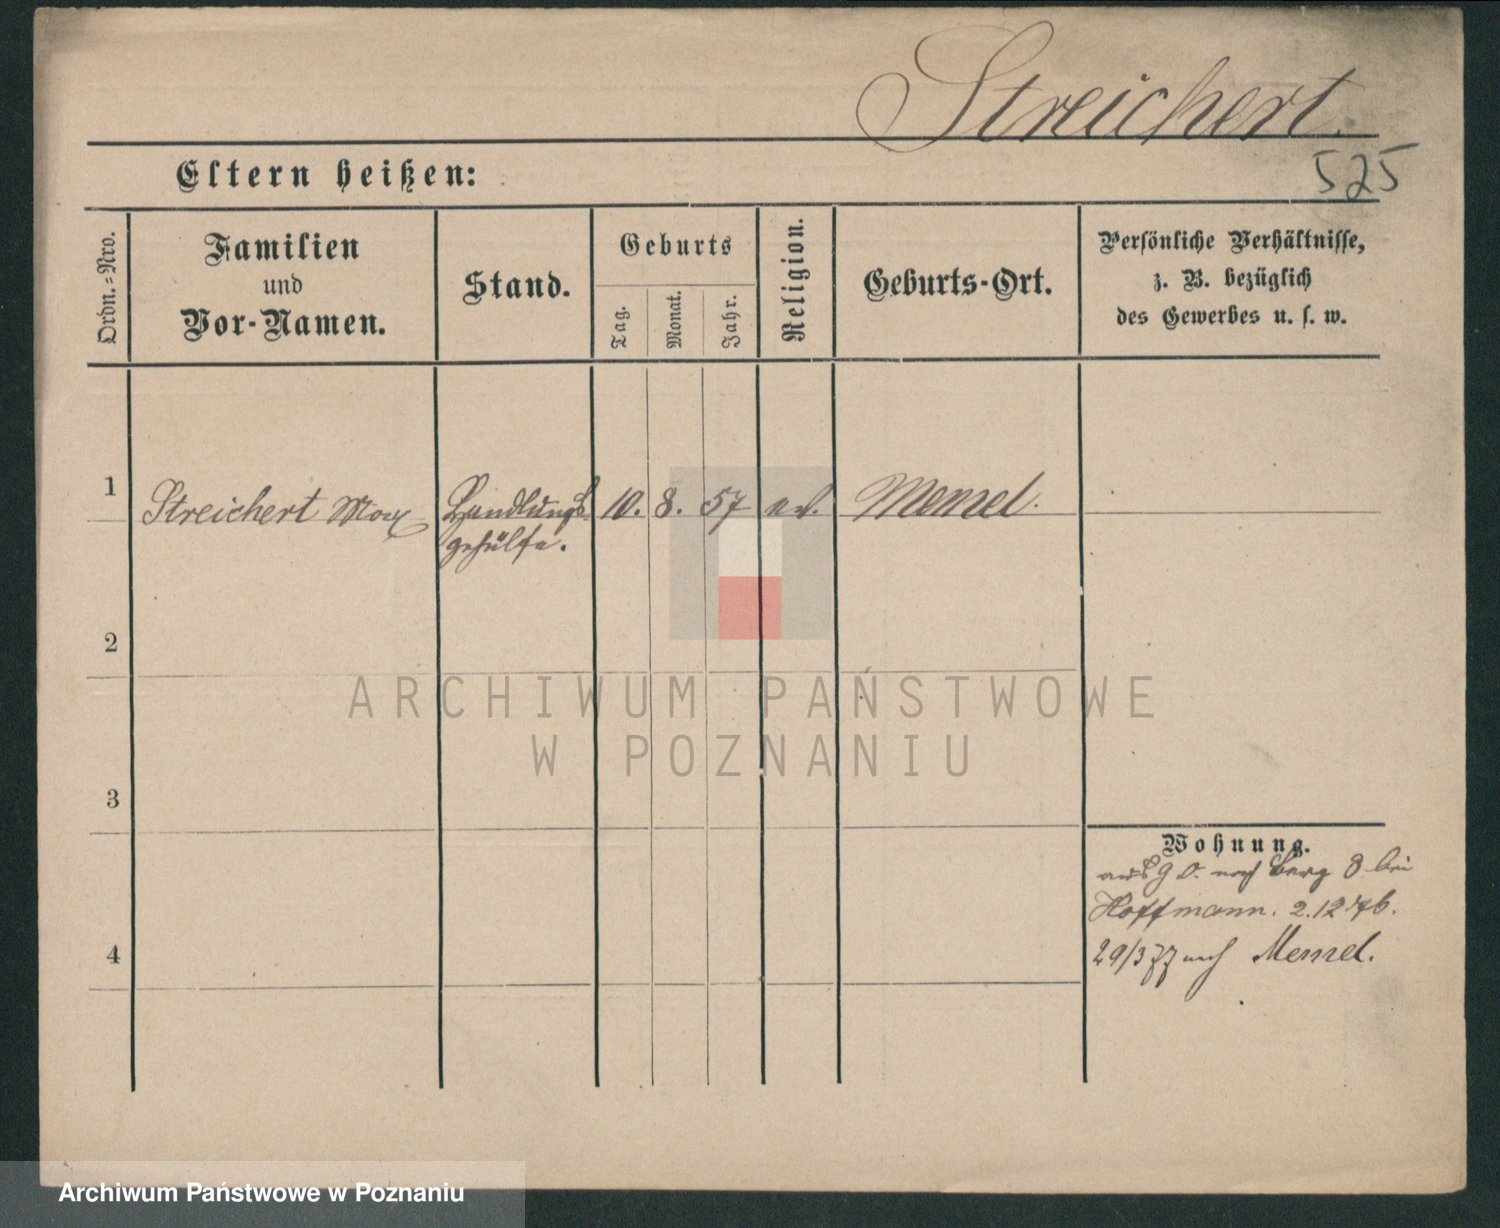 Streichert.
525
Eltern heißen:
Ordn.=Nro.
Familien
und
Vor-Namen.
Stand.
Geburts
Tag.
Monat.
Jahr.
Religion.
Geburts-Ort.
Persönliche Verhältnisse,
z. B. bezüglich
des Gewerbes u. s. w.
1
Streichert Max
Handlungs-
gehülfe.
10.
8.
57
ev.
Memel.
2
3
4
Wohnung.
nach Berg 8 bei
Hoffmann. 2.12 76.
29/3 77 nach Memel.
ARCHIWUM PAŃSTWOWE
W POZNANIU
Archiwum Państwowe w Poznaniu